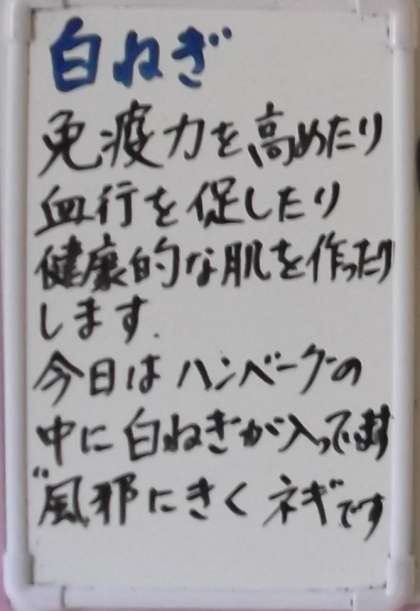 白ねぎ
免疫力を高めたり
血行を促したり
健康的な肌を作ったり
します.
今日はハンベーグの
中に白ねぎが入ってます
"風邪にきくネギです